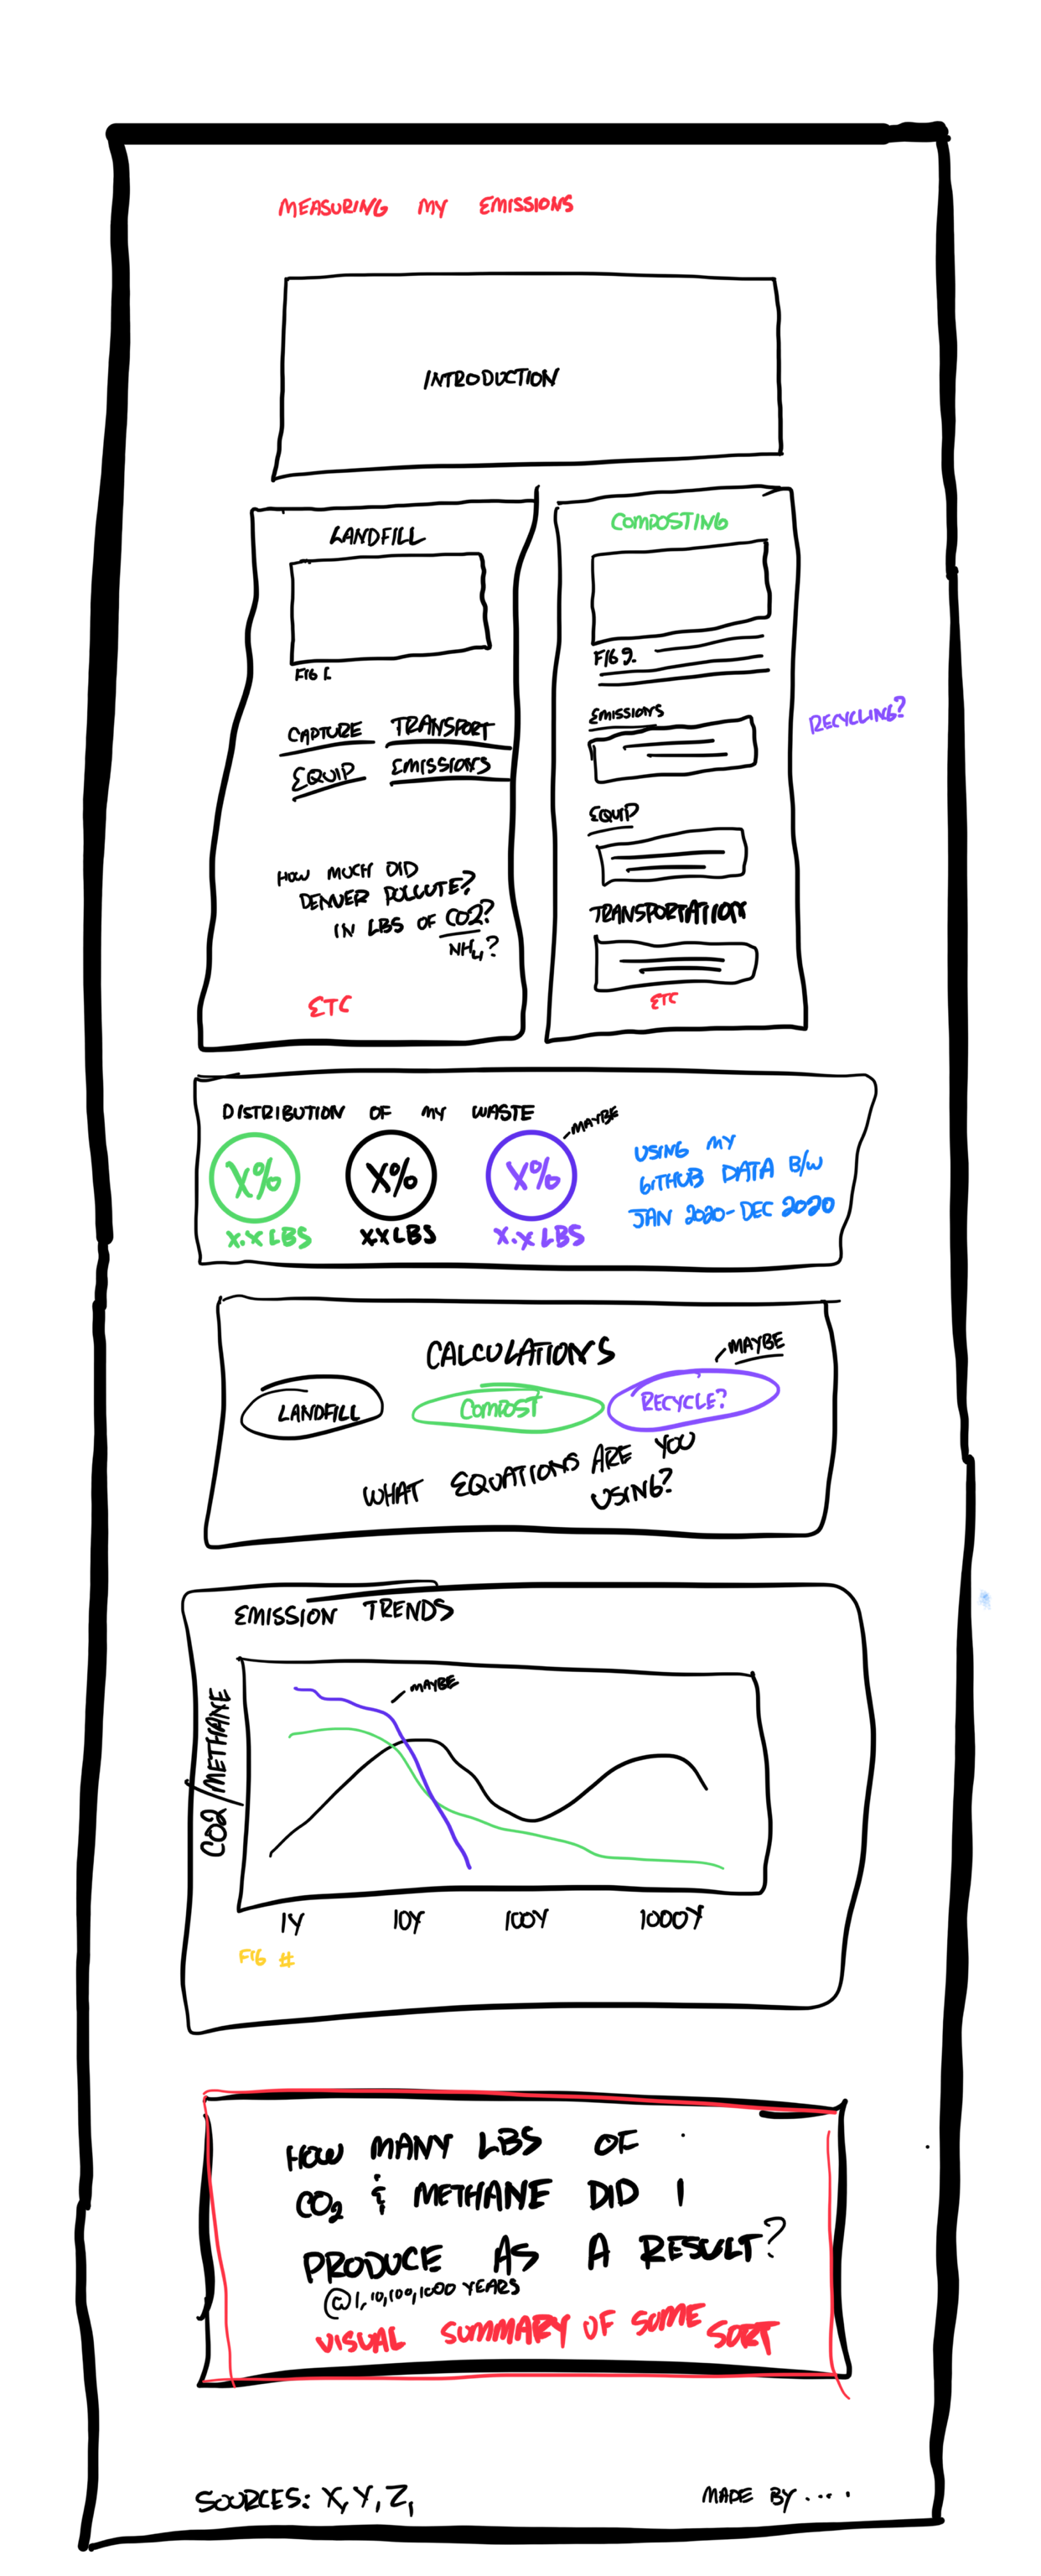 MEASURING MY EMISSIONS
INTRODUCTION
LANDFILL
FIG 1.
CAPTURE TRANSPORT
EQUIP EMISSIONS
HOW MUCH DID
DENVER POLLUTE?
IN LBS OF CO2?
NH4?
ETC
COMPOSTING
FIG 2.
EMISSIONS
EQUIP
TRANSPORTATION
ETC
RECYCLING?
DISTRIBUTION OF MY WASTE
MAYBE
X% X% X%
X.X LBS X.X LBS X.X LBS
USING MY
GITHUB DATA B/W
JAN 2020-DEC 2020
CALCULATIONS
MAYBE
LANDFILL COMPOST RECYCLE?
WHAT EQUATIONS ARE YOU
USING?
EMISSION TRENDS
MAYBE
CO2/METHANE
1Y 10Y 100Y 1000Y
FIG #
HOW MANY LBS OF
CO2 & METHANE DID I
PRODUCE AS A RESULT?
@1,10,100,1000 YEARS
VISUAL SUMMARY OF SOME SORT
SOURCES: X, Y, Z,
MADE BY ....